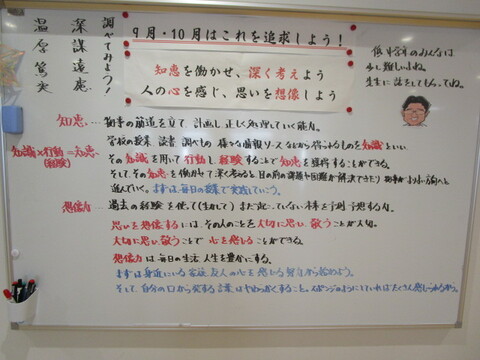 9月・10月はこれを追求しよう！
知恵を働かせ、深く考えよう
人の心を感じ、思いを想像しよう
調べてみよう！
深謀遠慮
温厚篤実
低中学のみんなは
少し難しいよね。
先生に話をしてもらってね。
知恵… 物事の筋道を立て、計画し、正しく処理していく能力。
学校の授業、読書、調べもの 様々な情報ソースなどから得られるものを知識といい、
その知識を用いて行動し経験することで知恵を獲得することができる。
そして、その知恵を働かせて深く考えると、目の前の課題や困難が解決できたり 物事がより良い方向へと
進んでいく。まずは毎日の授業で実践していこう。
知識×行動=知恵
(経験)
想像力… 過去の経験を使って(生かして) まだ起こっていない未来を予測・予想する力。
思いを想像するには、その人のことを大切に思い、敬うことが大切。
大切に思い、敬うことで 心を感じることができる。
想像力は毎日の生活、人生を豊かにする。
まずは身近にいる家族、友人の心を感じる努力から始めよう。
そして、自分の口から発する言葉はやわらかくすること。スポンジのようにしていればたくさん感じられるから。